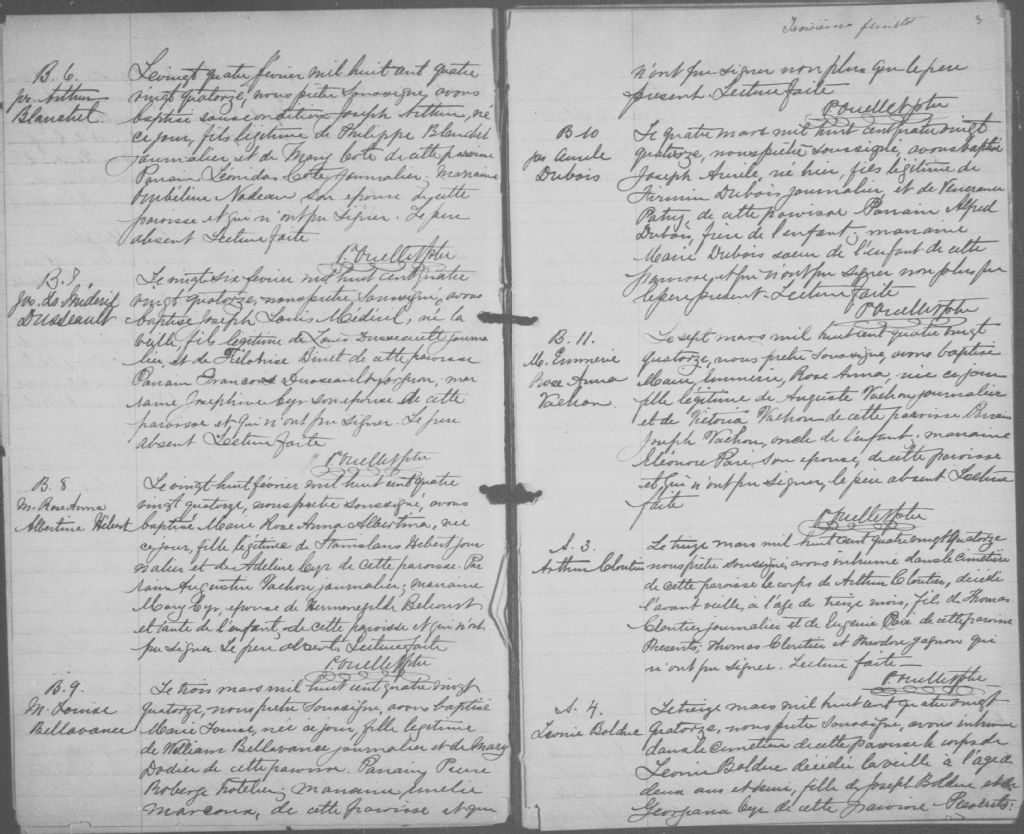 B. 6.
Jos. Arthur
Blanchet
Le vingt quatre février mil huit cent quatre
vingt quatorze, nous prêtre soussigné, avons
baptisé sous condition Joseph Arthur, né
ce jour, fils légitime de Philippe Blanchet
journalier et de Mary Coté de cette paroisse
Parrain Léonidas Coté journalier. Marraine
Nadeau son épouse de cette
paroisse et qui n'ont pu signer. Le père
absent Lecture faite
P. Ouellet ptre
B. 7
Jos. Ls Médéril
Dusseault
Le vingt six février mil huit cent quatre
vingt quatorze, nous prêtre soussigné, avons
baptisé Joseph Louis Médéril, né la
veille, fils légitime de Louis Dusseault journa
lier, et de Dinet de cette paroisse
Parrain Francois Dusseault forgeron, mar
raine Josephine Cyr son épouse de cette
paroisse et qui n'ont pu signer. Le père
absent Lecture faite
P. Ouellet ptre
B. 8
M. Rose Anna
Albertina Hébert
Le vingt huit février mil huit cent quatre
vingt quatorze, nous prêtre soussigné, avons
baptisé Marie Rose Anna Albertina, née
ce jour, fille légitime de Stanislas Hébert jour
nalier et de Adeline Cyr de cette paroisse. Par
rain Augustin Vachon journalier; marraine
Mary Cyr, épouse de Hermenegilde Belcourt
et tante de l'enfant, de cette paroisse et qui n'ont
pu signer Le père absent. Lecture faite
P. Ouellet ptre
B. 9.
M. Louise
Bellavance
Le trois mars mil huit cent quatre vingt
quatorze, nous prêtre soussigné, avons baptisé
Marie Louise, née ce jour, fille légitime
de William Bellavance journalier et de Mary
Dodier de cette paroisse. Parrain, Pierre
Roberge hotelier; marraine, Amélie
Marcoux, de cette paroisse et qui
Troisième feuillet
3
n'ont pu signer non plus que le père
présent. Lecture faite
P. Ouellet ptre
B 10
Jos Aurèle
Dubois
Le quatre mars mil huit cent quatre vingt
quatorze, nous prêtre soussigné, avons baptisé
Joseph Aurèle, né hier, fils légitime de
Firmin Dubois journalier, et de
Patry, de cette paroisse. Parrain Alfred
Dubois, frère de l'enfant, marraine
Marie Dubois soeur de l'enfant de cette
paroisse, et qui n'ont pu signer non plus que
le père présent. Lecture faite
P. Ouellet ptre
B. 11.
M. Emmérie
Rose Anna
Vachon
Le sept mars mil huit cent quatre vingt
quatorze, nous prêtre soussigné, avons baptisé
Marie Emmérie, Rose Anna, née ce jour
fille légitime de Auguste Vachon journalier
et de Victoria Vachon de cette paroisse Parrain
Joseph Vachon, oncle de l'enfant. marraine
Eléonore Paré, son épouse, de cette paroisse
et qui n'ont pu signer, le père absent Lecture
faite
P. Ouellet ptre
S. 3.
Arthur Cloutier
Le treize mars mil huit cent quatre vingt quatorze
nous prêtre soussigné, avons inhumé dans le cimetière
de cette paroisse le corps de Arthur Cloutier, décédé
l'avant veille, à l'age de treize mois, fils de Thomas
Cloutier journalier et de Eugénie Paré de cette paroisse
Présents: Thomas Cloutier et Théodore Gagnon qui
n'ont pu signer. Lecture faite
P. Ouellet ptre
S. 4.
Léonie Bolduc
Le treize mars mil huit cent quatre vingt
quatorze, nous prêtre soussigné, avons inhumé
dans le cimetière de cette paroisse le corps de
Léonie Bolduc décédée la veille à l'age de
deux ans et demi, fille de Joseph Bolduc et de
Georgeana Cyr de cette paroisse Présents: